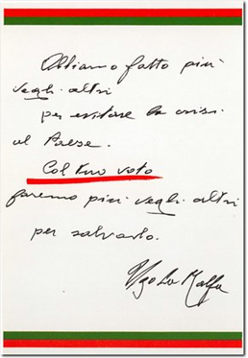 Abbiamo fatto più
degli altri
per evitare la crisi
al Paese.
Col tuo voto
faremo più degli altri
per salvarlo.
Ugo La Malfa